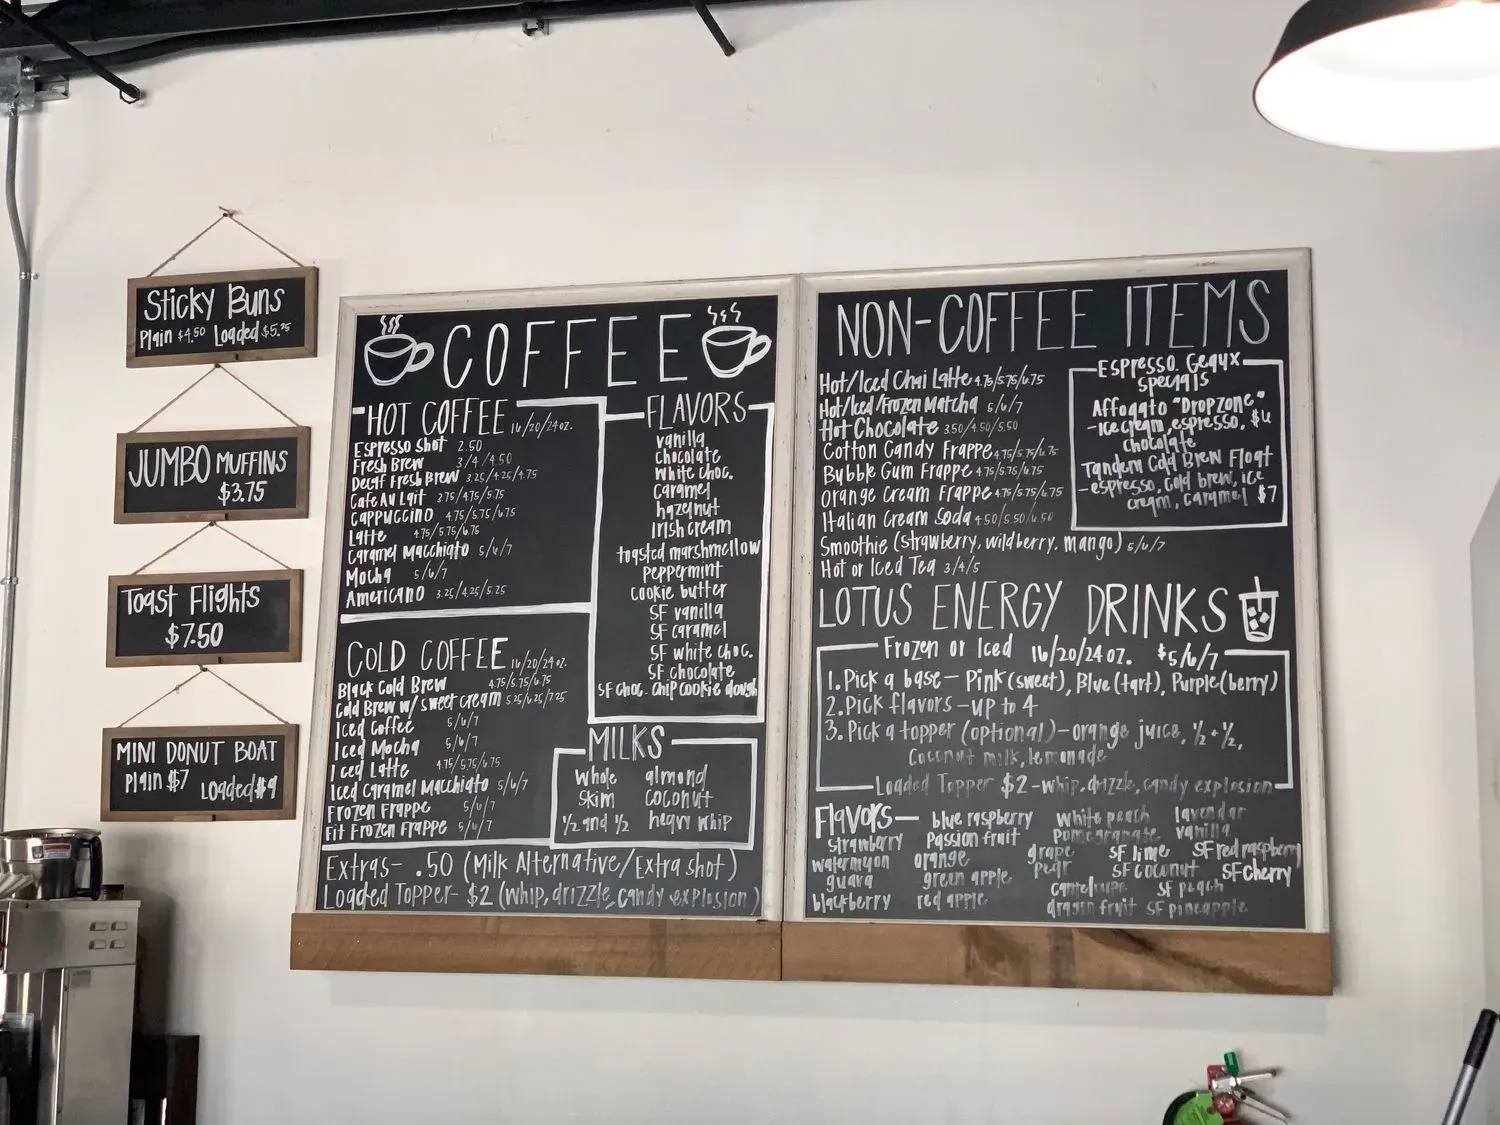 Sticky Buns
Plain $4.50 Loaded $5.25
JUMBO MUFFINS
$3.75
Toast Flights
$7.50
MINI DONUT BOAT
Plain $7 Loaded $9
COFFEE
HOT COFFEE 16/20/24oz.
Espresso Shot 2.50
Fresh Brew 3/4/4.50
Decaf Fresh Brew 3.25/4.25/4.75
Cafe Au Lait 2.75/4.75/5.75
Cappuccino 4.75/5.75/6.75
Latte 4.75/5.75/6.75
Caramel Macchiato 5/6/7
Mocha 5/6/7
Americano 3.25/4.25/5.25
COLD COFFEE 16/20/24oz.
Black Cold Brew 4.75/5.75/6.75
Cold Brew w/ sweet cream 5.25/6.25/7.25
Iced Coffee 5/6/7
Iced Mocha 5/6/7
Iced Latte 4.75/5.75/6.75
Iced Caramel Macchiato 5/6/7
Frozen Frappe 5/6/7
Fit Frozen Frappe 5/6/7
FLAVORS
vanilla
chocolate
white choc.
caramel
hazelnut
Irish cream
toasted marshmellow
peppermint
cookie butter
SF vanilla
SF caramel
SF white choc.
SF chocolate
SF choc. chip cookie dough
MILKS
whole almond
skim coconut
½ and ½ heavy whip
Extras- .50 (Milk Alternative/Extra shot)
Loaded Topper- $2 (whip, drizzle, candy explosion)
NON-COFFEE ITEMS
Hot/Iced Chai Latte 4.75/5.75/6.75
Hot/Iced/Frozen Matcha 5/6/7
Hot Chocolate 3.50/4.50/5.50
Cotton Candy Frappe 4.75/5.75/6.75
Bubble Gum Frappe 4.75/5.75/6.75
Orange Cream Frappe 4.75/5.75/6.75
Italian Cream Soda 4.50/5.50/6.50
Smoothie (strawberry, wildberry, mango) 5/6/7
Hot or Iced Tea 3/4/5
Espresso Geaux
Specials
Affogato "Dropzone"
- ice cream, espresso, $6
chocolate
Tandem Cold Brew Float
- espresso, cold brew, ice
cream, caramel $7
LOTUS ENERGY DRINKS
Frozen or Iced 16/20/24 oz. $5/6/7
1. Pick a base - Pink (sweet), Blue (tart), Purple (berry)
2. Pick flavors - up to 4
3. Pick a topper (optional) - orange juice, ½ + ½,
Coconut milk, lemonade
Loaded Topper $2 - whip, drizzle, candy explosion
Flavors- blue raspberry white peach lavendar
strawberry passion fruit pomegranate vanilla
watermelon orange grape SF lime SF red raspberry
guava green apple pear SF coconut SF cherry
blackberry red apple cantelope SF peach
dragon fruit SF pineapple